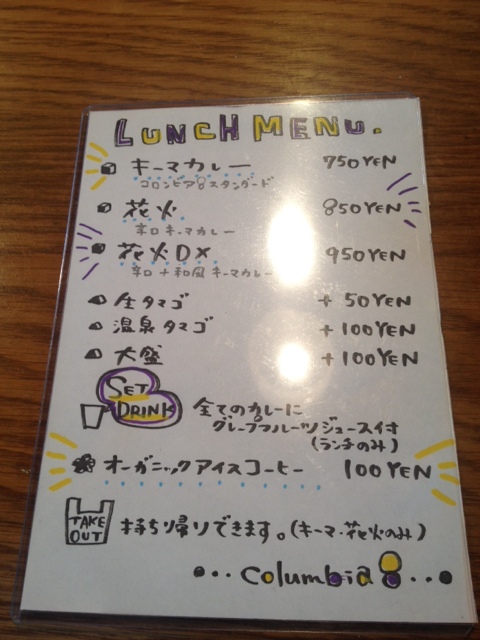 LUNCH MENU.
キーマカレー 750YEN
コロンビア8スタンダード
花火 850YEN
辛口キーマカレー
花火DX 950YEN
辛口+和風キーマカレー
生タマゴ +50YEN
温泉タマゴ +100YEN
大盛 +100YEN
SET DRINK
全てのカレーに
グレープフルーツジュース付
(ランチのみ)
オーガニックアイスコーヒー 100YEN
TAKE OUT
持ち帰りできます。(キーマ・花火のみ)
•••columbia8••●